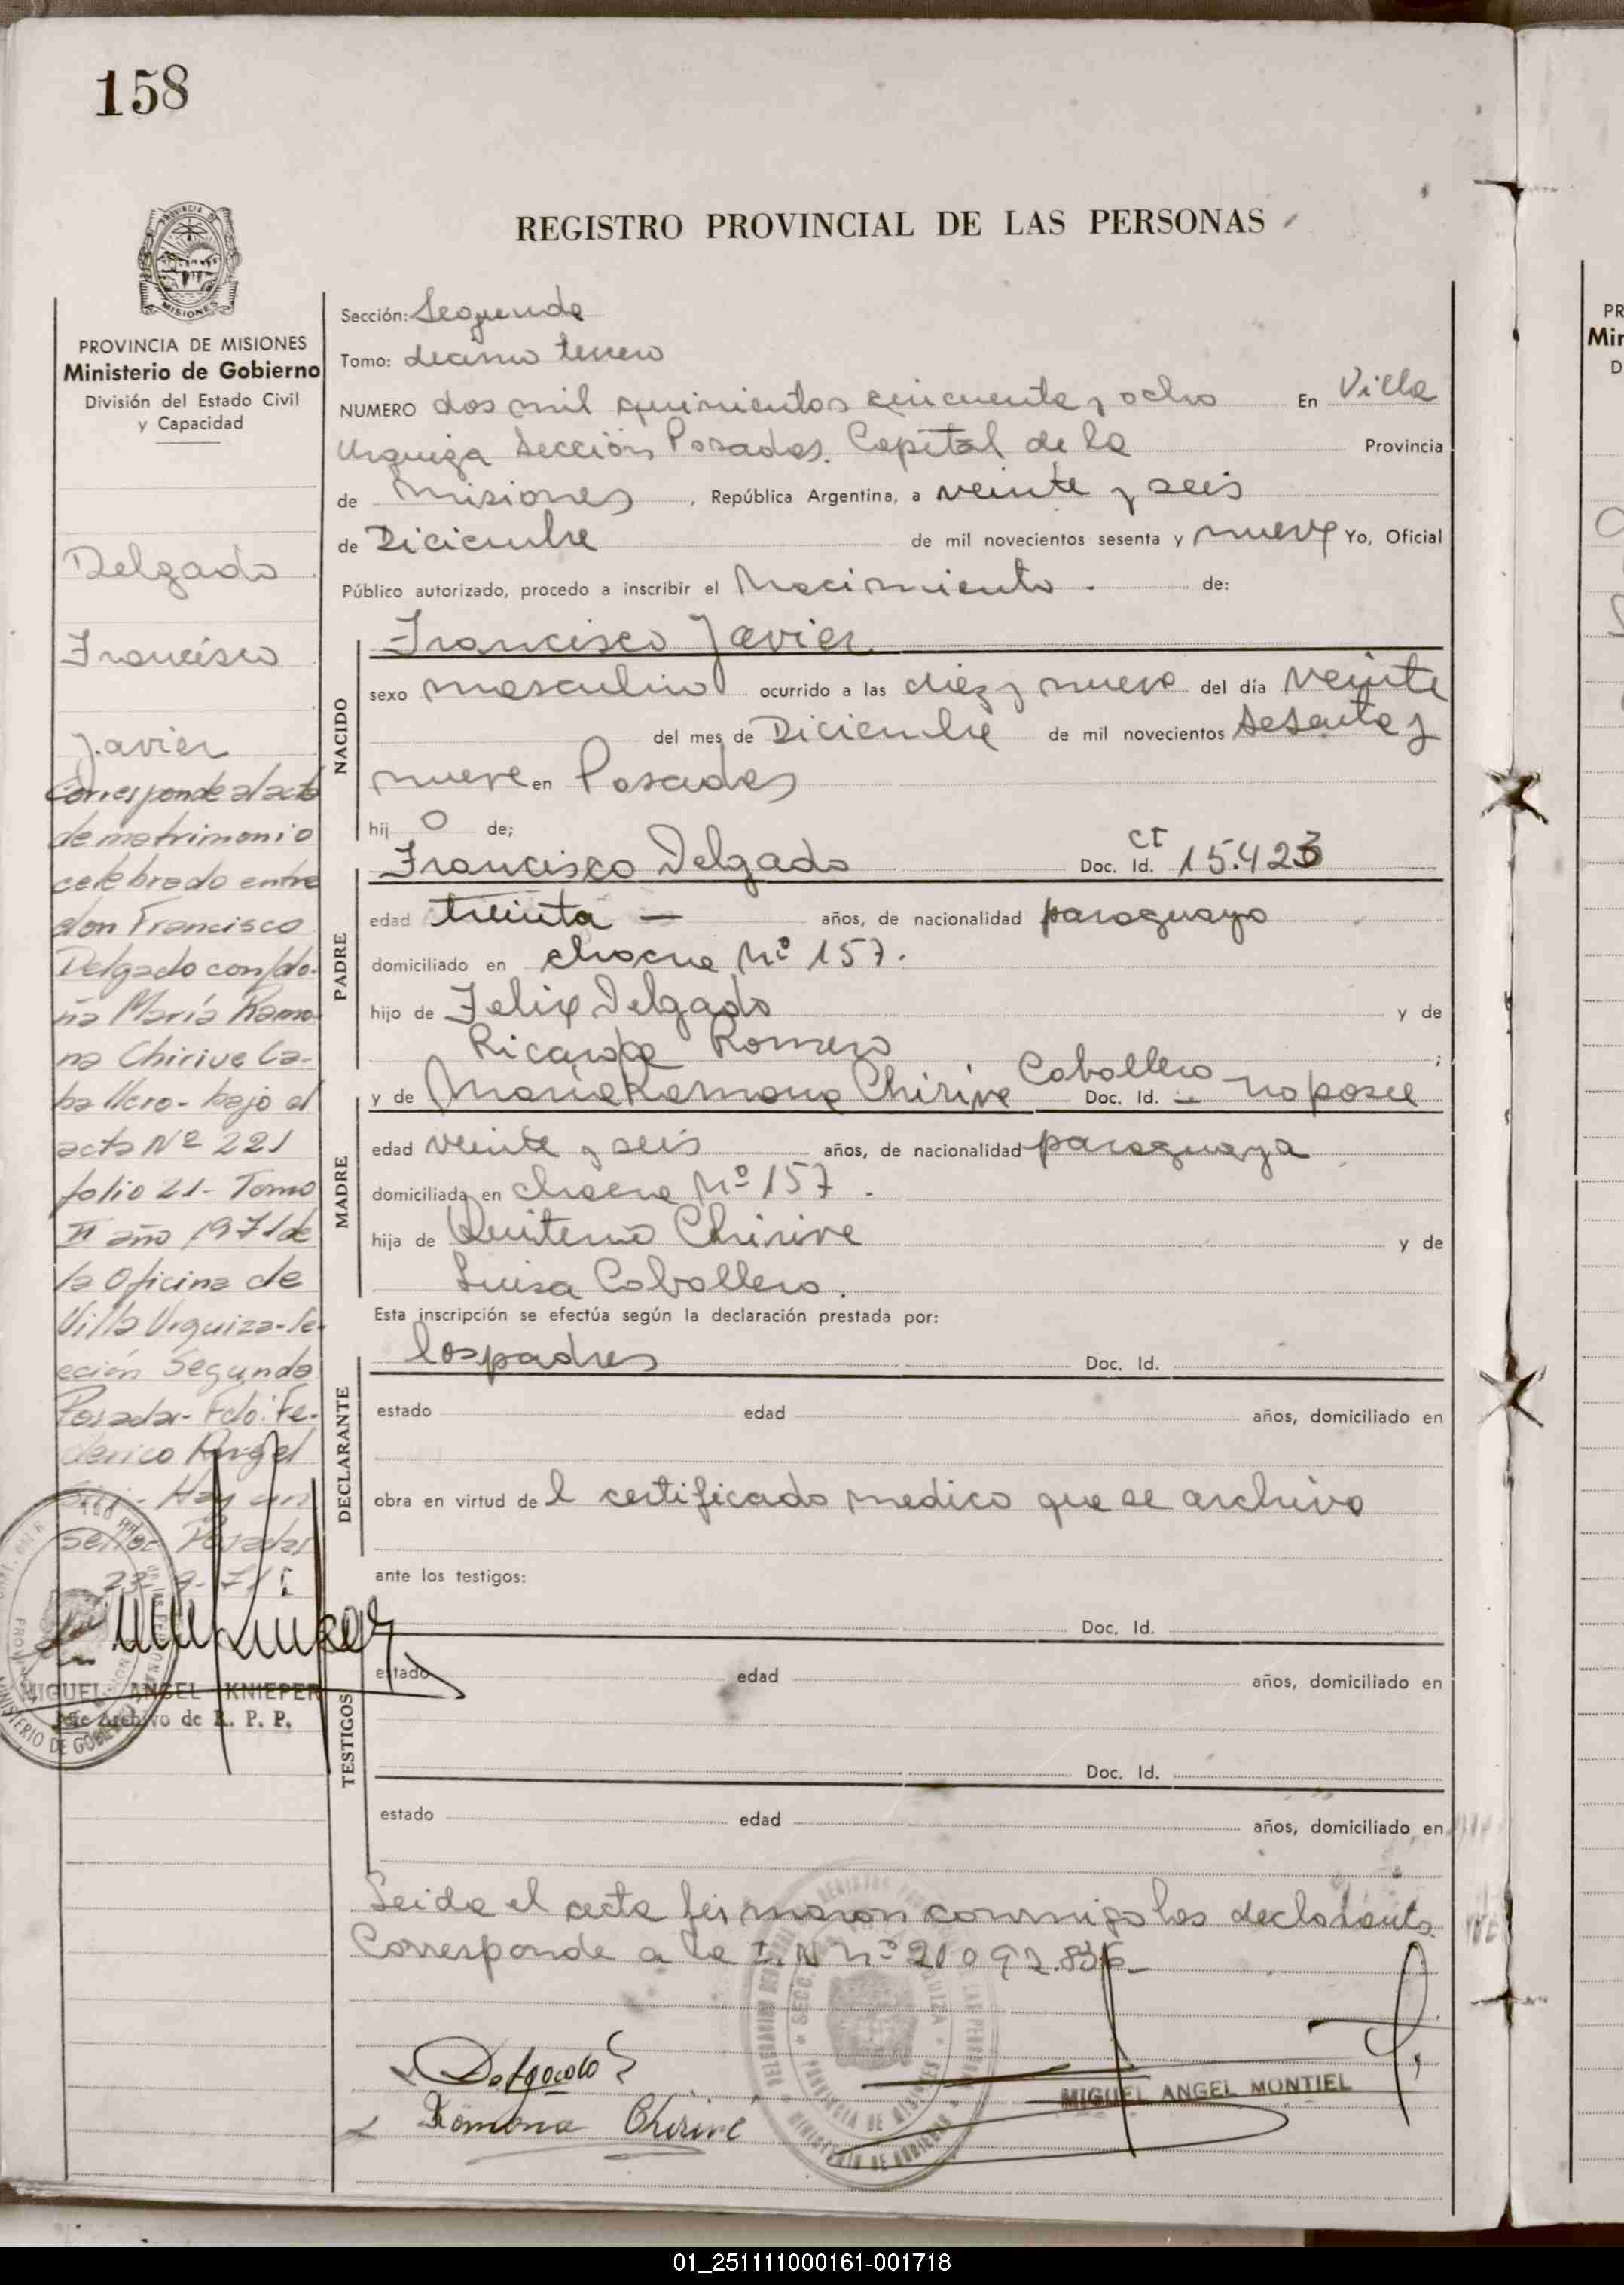 158
REGISTRO PROVINCIAL DE LAS PERSONAS
MISIONES
PROVINCIA DE MISIONES
Ministerio de Gobierno
División del Estado Civil
y Capacidad
Delgado
Francisco
Javier
Corresponde al acta
de matrimonio
celebrado entre
don Francisco
Delgado con do-
ña María Ramo-
na Chirive Ca-
ballero - bajo el
acta Nº 221
folio 21 - Tomo
II año 1971 de
la Oficina de
Villa Urquiza - Se-
cción Segunda
Posadas - Fdo: Fe-
derico Angel
Hay un
sello: Posadas
MIGUEL ANGEL KNIEPER
Jefe Archivo de R. P. P.
Sección: Segunda
Tomo: decimo tercero
NUMERO dos mil quinientos cincuenta y ocho En Villa
Urquiza Sección Posadas. Capital de la Provincia
de Misiones, República Argentina, a veinte y seis
de Diciembre de mil novecientos sesenta y nueve Yo, Oficial
Público autorizado, procedo a inscribir el Nacimiento - de:
NACIDO
Francisco Javier
sexo masculino ocurrido a las diez y nueve del día veinte
del mes de Diciembre de mil novecientos sesenta y
nueve en Posadas
hij o de;
PADRE
Francisco Delgado Doc. Id. CI 15.423
edad treinta — años, de nacionalidad paraguayo
domiciliado en chacra Nº 157.
hijo de Felix Delgado y de
Ricarda Romero ;
MADRE
y de Maria Ramona Chirive Caballero Doc. Id. - no posee
edad veinte y seis años, de nacionalidad paraguaya
domiciliada en chacra Nº 157.
hija de Quiterio Chirive y de
Luisa Caballero.
Esta inscripción se efectúa según la declaración prestada por:
DECLARANTE
los padres Doc. Id.
estado edad años, domiciliado en
obra en virtud de l certificado medico que se archiva
ante los testigos:
TESTIGOS
Doc. Id.
estado edad años, domiciliado en
Doc. Id.
estado edad años, domiciliado en
Leida el acta firmaron conmigo los declarants.
Corresponde a la
Delgado
Ramona Chirive
MIGUEL ANGEL MONTIEL
PR
Mir
D
01_251111000161-001718